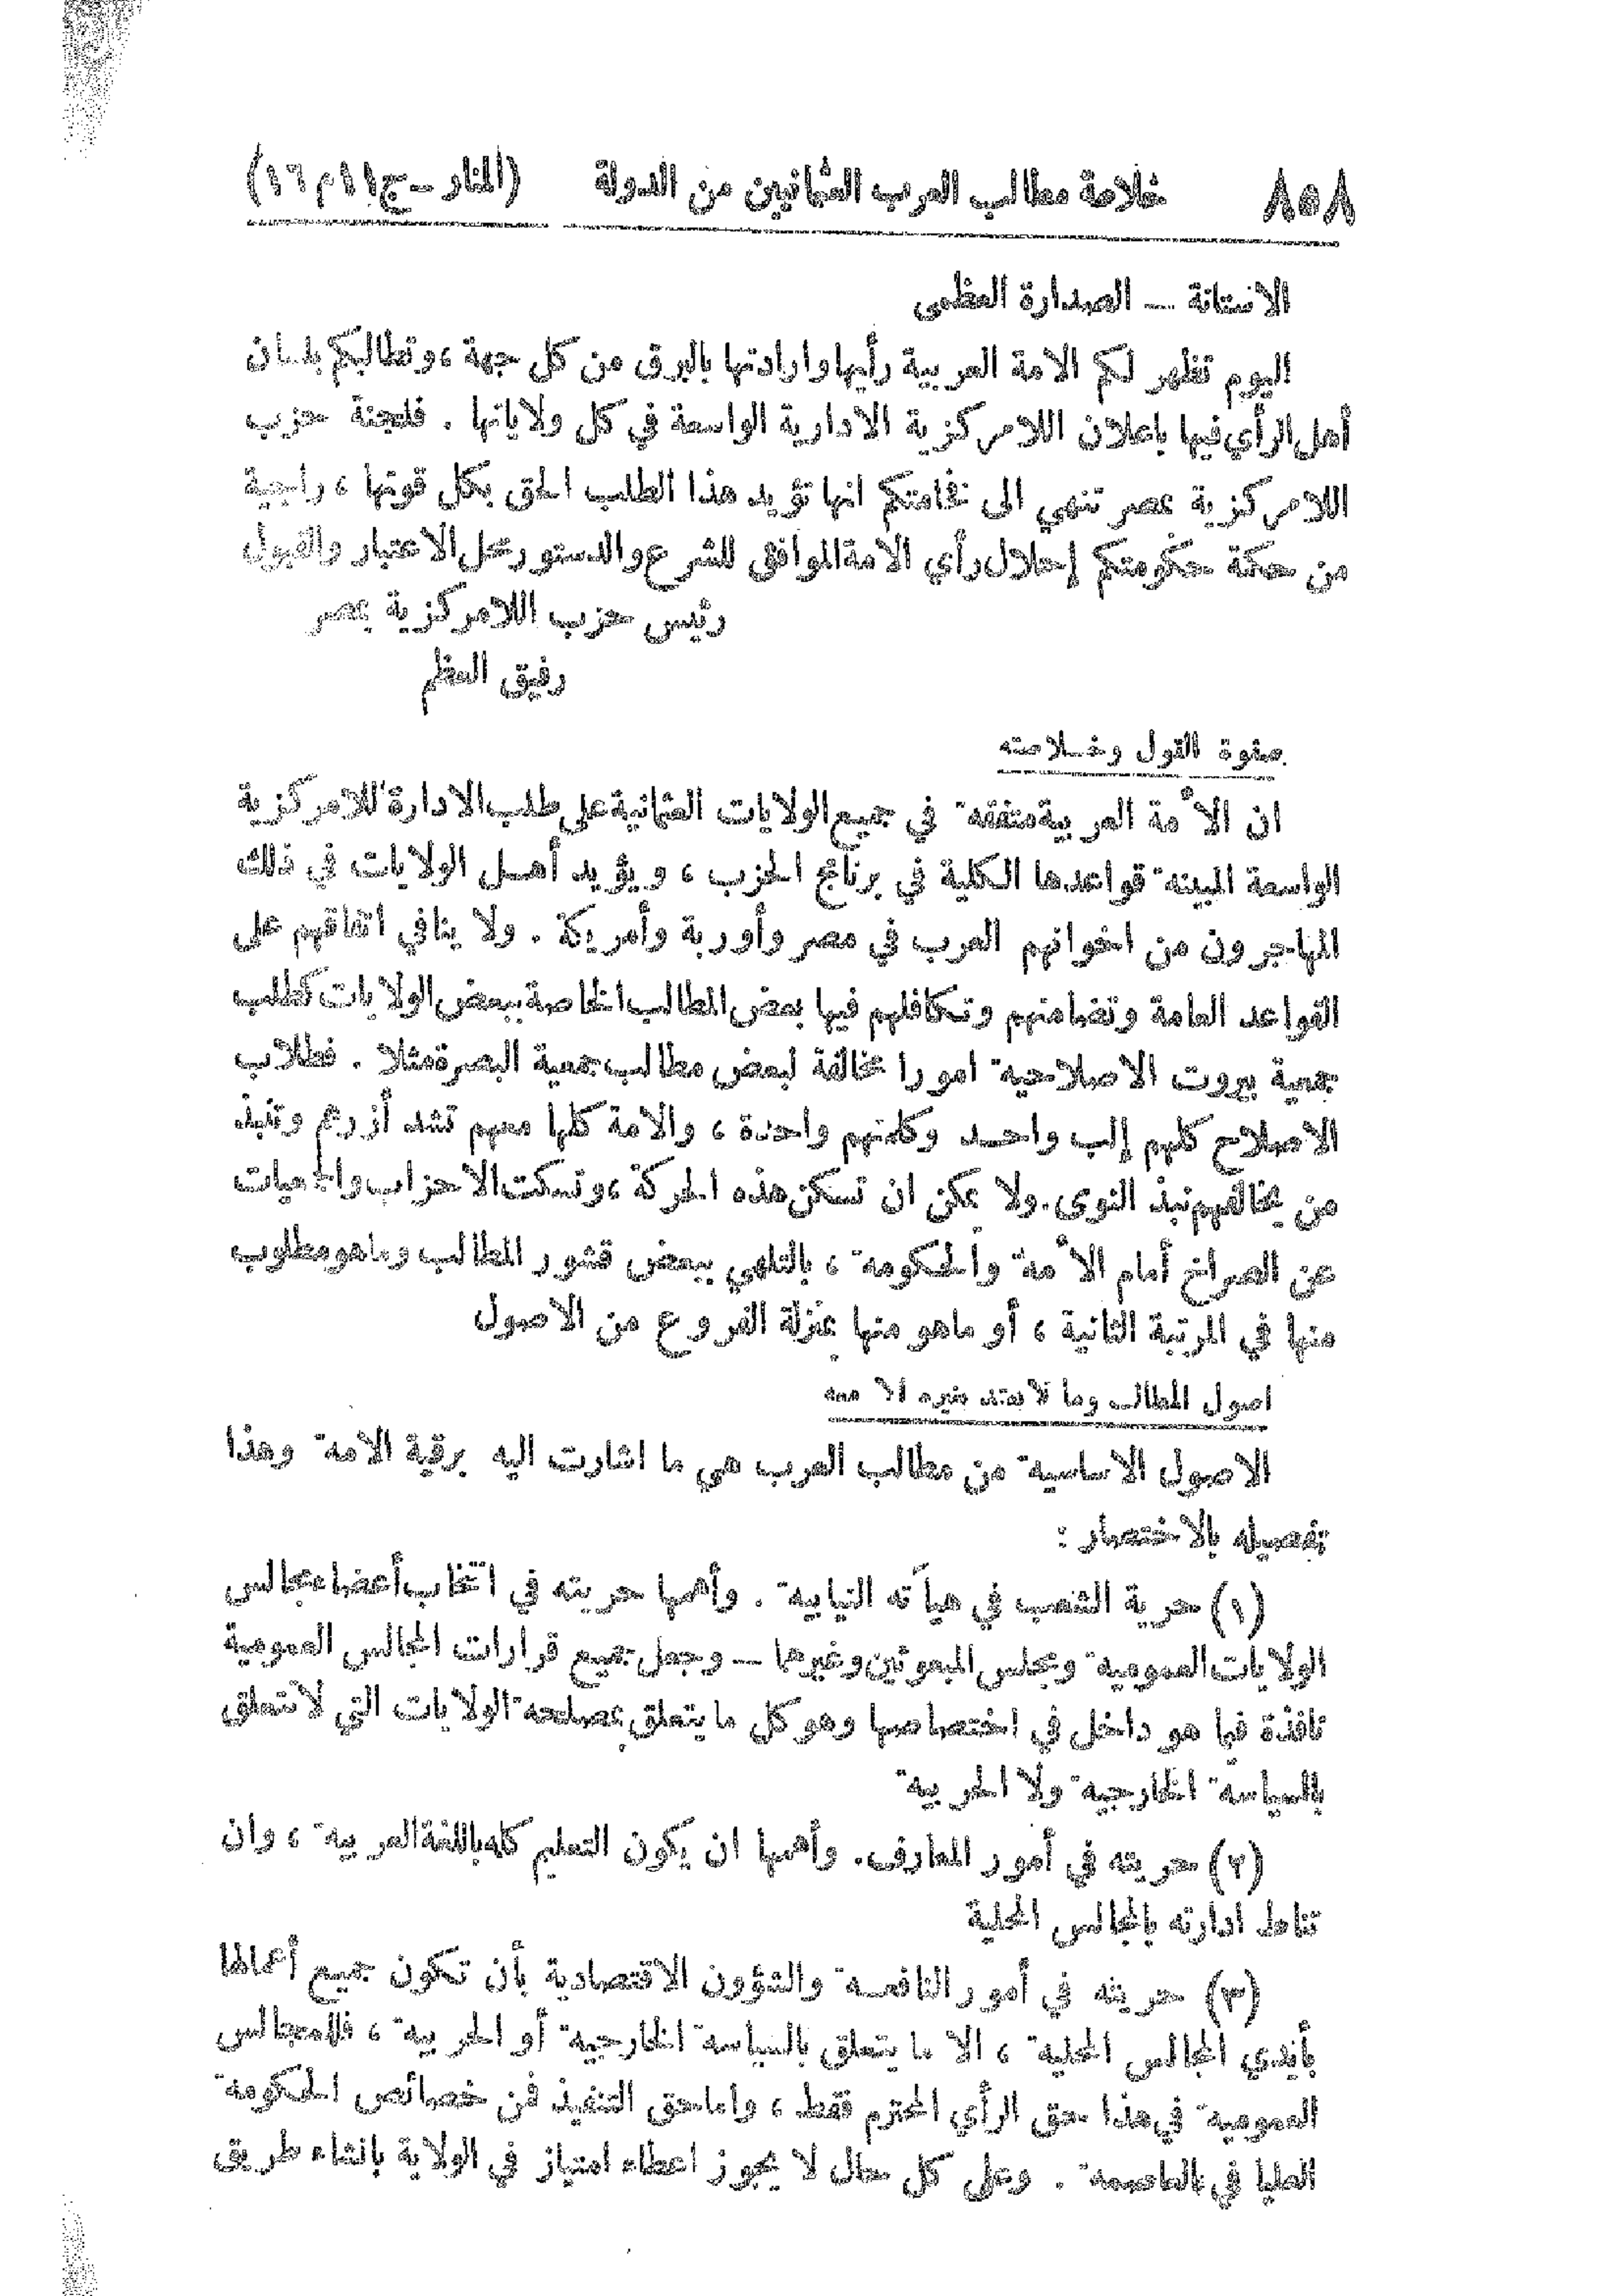 ٨٥٨ خلاصة مطالب العرب العثمانيين من الدولة (المنار ــ ج١١م١٦)
الاستانة ــ الصدارة العظمى
اليوم تظهر لكم الامة العربية رأيها وارادتها بالبرق من كل جهة ، وتطالبكم بلسان
أهل الرأي فيها باعلان اللامركزية الادارية الواسعة في كل ولاياتها . فلجنة حزب
اللامركزية بمصر تنهي الى فخامتكم انها تؤيد هذا الطلب الحق بكل قوتها ، راجية
من حكمة حكومتكم إحلال رأي الامة الموافق للشرع والدستور محل الاعتبار والقبول
رئيس حزب اللامركزية بمصر
رفيق العظم
صفوة القول وخلاصته
ان الأمة العربية متفقة في جميع الولايات العثمانية على طلب الادارة اللامركزية
الواسعة المبينة قواعدها الكلية في برنامج الحزب ، ويؤيد أهل الولايات في ذلك
المهاجرون من اخوانهم العرب في مصر وأوربة وأمريكة . ولا ينافي اتفاقهم على
القواعد العامة وتضامنهم وتكافلهم فيها بعض المطالب الخاصة ببعض الولايات كطلب
جمعية بيروت الاصلاحية امورا مخالفة لبعض مطالب جمعية البصرة مثلا . فطلاب
الاصلاح كلهم إلب واحد وكلمتهم واحدة ، والامة كلها معهم تشد أزرهم وتنبذ
من يخالفهم نبذ النوى . ولا يمكن ان تسكن هذه الحركة ، وتسكت الاحزاب والجمعيات
عن الصراخ أمام الأمة والحكومة ، بالتلهي ببعض قشور المطالب وما هو مطلوب
منها في المرتبة الثانية ، أو ما هو منها بمنزلة الفروع من الاصول
اصول المطالب وما لا يعتد بغيره الا معه
الاصول الاساسية من مطالب العرب هي ما اشارت اليه برقية الامة وهذا
تفصيله بالاختصار :
(١) حرية الشعب في هيآته النيابية . وأهمها حريته في انتخاب أعضاء مجالس
الولايات العمومية ومجلس المبعوثين وغيرهما ــ وجعل جميع قرارات المجالس العمومية
نافذة فيما هو داخل في اختصاصها وهو كل ما يتعلق بمصلحة الولايات التي لا تتعلق
بالسياسة الخارجية ولا الحربية
(٢) حريته في أمور المعارف . وأهمها ان يكون التعليم كله باللغة العربية ، وان
تناط ادارته بالمجالس المحلية
(٣) حريته في أمور النافعة والشؤون الاقتصادية بأن تكون جميع أعمالها
بأيدي المجالس المحلية ، الا ما يتعلق بالسياسة الخارجية أو الحربية ، فللمجالس
العمومية في هذا حق الرأي المحترم فقط ، واما حق التنفيذ فمن خصائص الحكومة
العليا في العاصمة . وعلى كل حال لا يجوز اعطاء امتياز في الولاية بانشاء طريق